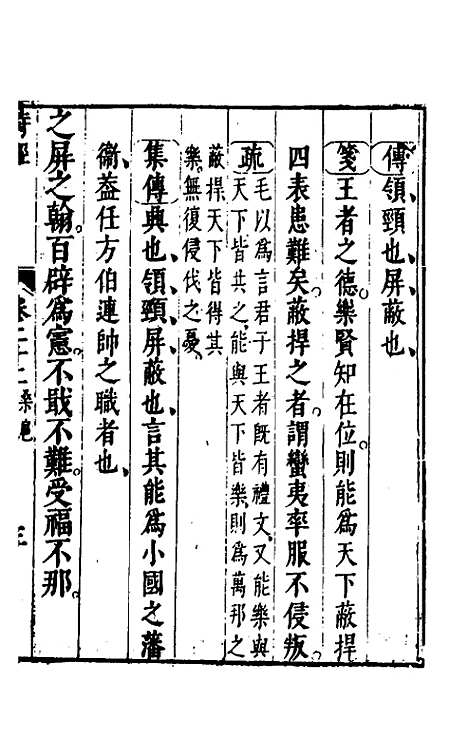 傳領頸也屏蔽也
箋王者之德樂賢知在位則能爲天下蔽捍
四表患難矣蔽捍之者謂蠻夷率服不侵叛
疏毛以爲言君子王者旣有禮文又能樂與
天下皆共之能與天下皆樂則爲萬邦之
蔽捍天下皆得其
樂無復侵伐之憂
集傳興也領頸屏蔽也言其能爲小國之藩
衞蓋任方伯連帥之職者也
之屏之翰百辟爲憲不戢不難受福不那
詩經
卷二十二桑扈
三